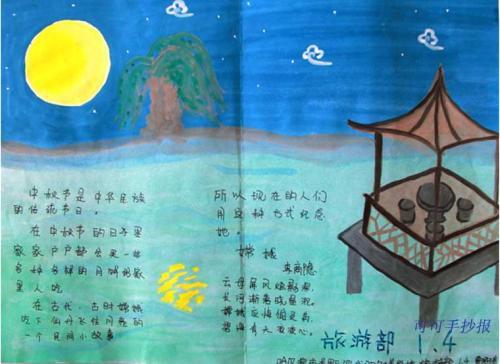 中秋节是中华民族
的传统节日。
在中秋节的日子里
家家户户都会买一些
各种各样的月饼给家
里人吃
在古代,古时嫦娥
吃下仙丹飞往月亮的
一个民间小故事
所以现在的人们
用这种方式纪念
她。
嫦娥
李商隐
云母屏风烛影深,
长河渐落晓星沉。
嫦娥应悔偷灵药
碧海青天夜夜心。
旅游部 1.4
可可手抄报